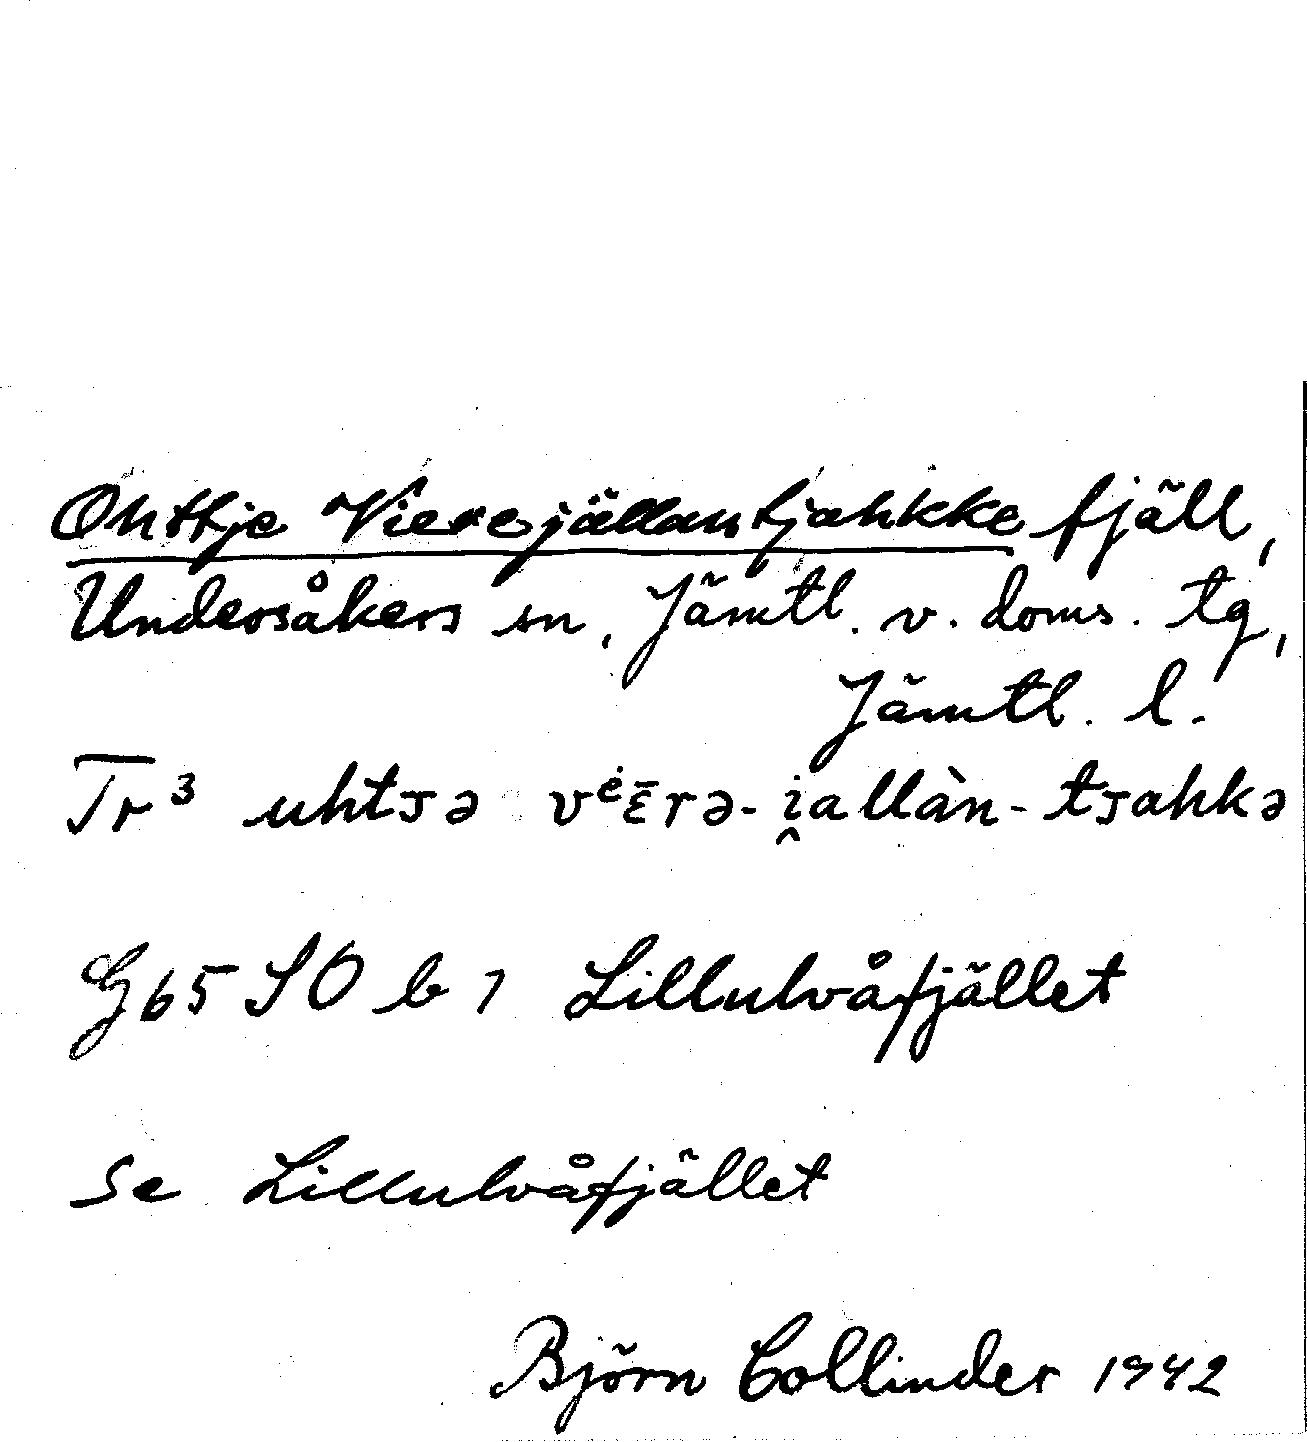 Ohttje Vierejällantjahkke fjäll,
Undersåkers sn, Jämtl. v. doms. tg,
Jämtl. l.
Tr³ uhtsə vᵉ̇ε̄rə-i̯allàn-tsahkə
G65 SO b 1 Lillulvåfjället
Se Lillulvåfjället
Björn Collinder 1942